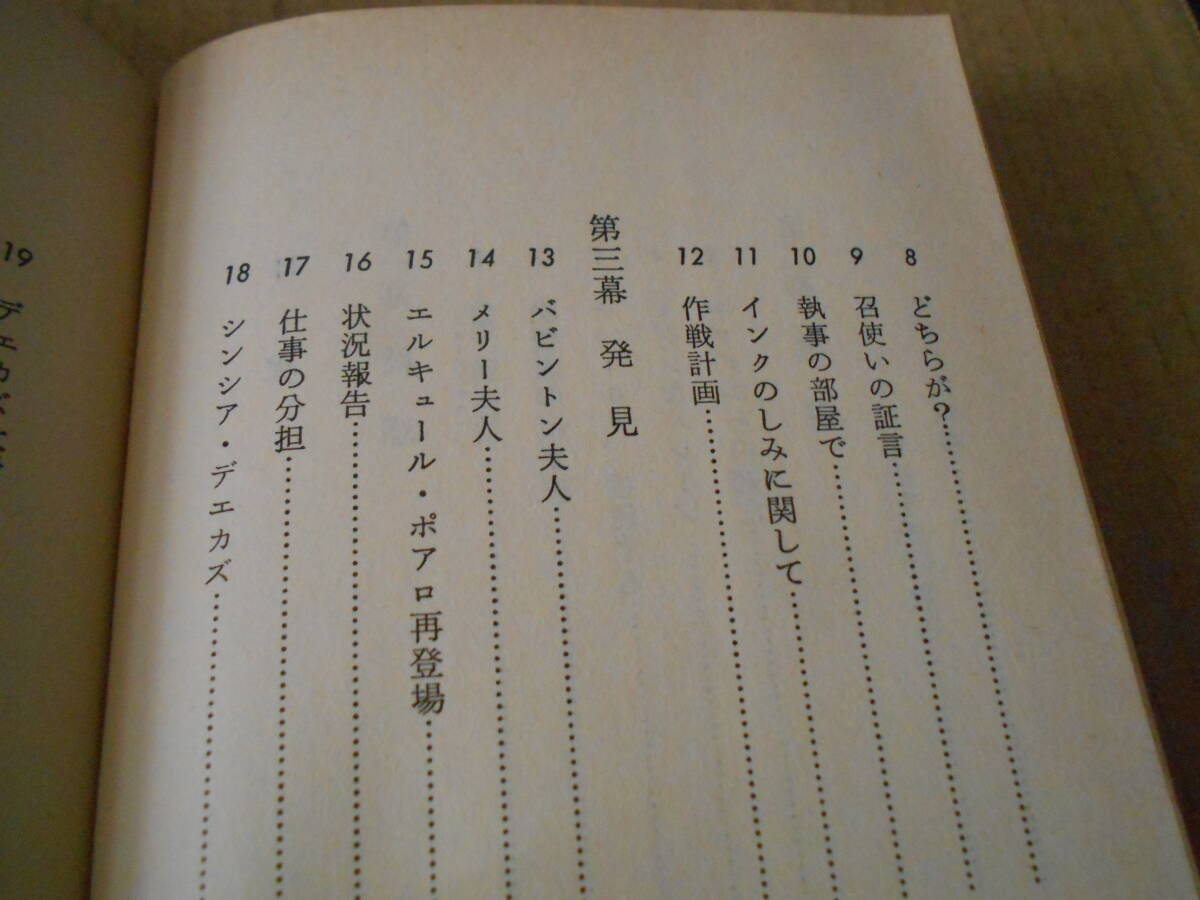 8 どちらが?
9 召使いの証言
10 執事の部屋で
11 インクのしみに関して
12 作戦計画
第三幕 発見
13 バビントン夫人
14 メリー夫人
15 エルキュール・ポアロ再登場
16 状況報告
17 仕事の分担
18 シンシア・デエカズ
19